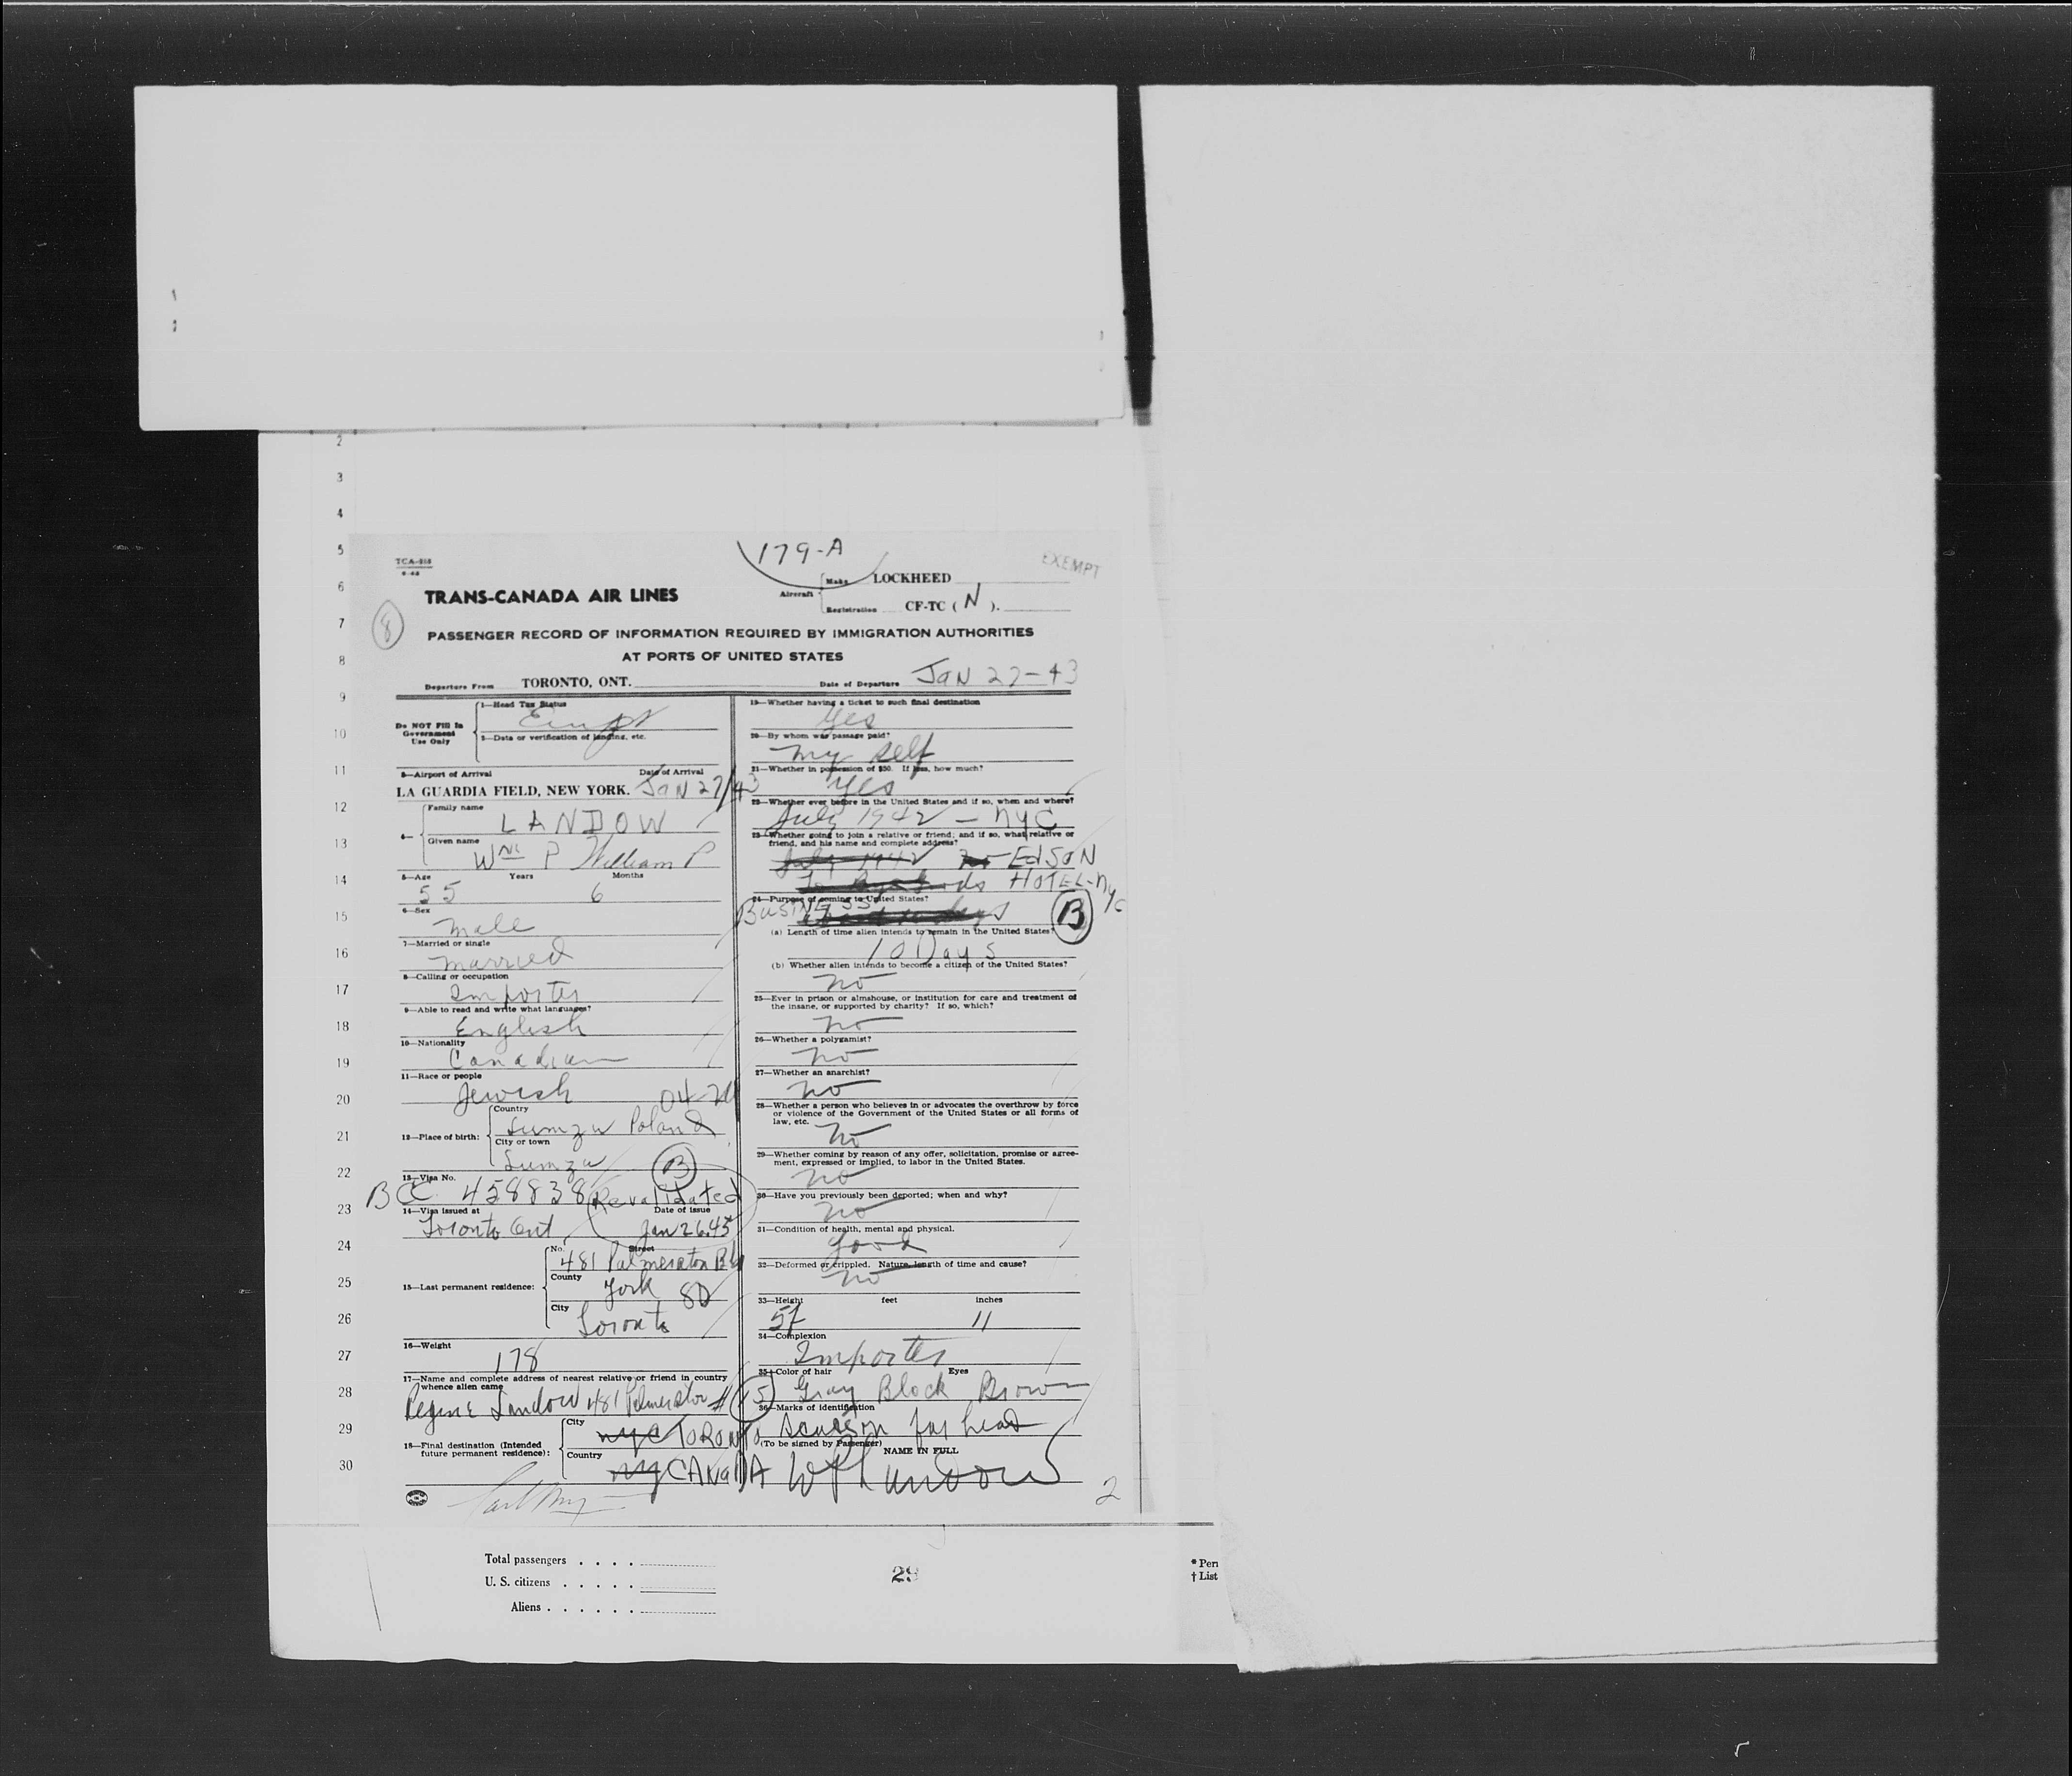 2
3
4
5
6
7
8
9
10
11
12
13
14
15
16
17
18
19
20
21
22
23
24
25
26
27
28
29
30
179-A
EXEMPT
TCA-
TRANS-CANADA AIR LINES
Aircraft
Make LOCKHEED
Registration CF-TC ( N ).
8
PASSENGER RECORD OF INFORMATION REQUIRED BY IMMIGRATION AUTHORITIES
AT PORTS OF UNITED STATES
Departure From TORONTO, ONT. Date of Departure JAN 27-43
Do NOT Fill In
Government
Use Only
1—Head Tax Status
2—Date or verification of landing, etc.
3—Airport of Arrival Date of Arrival
LA GUARDIA FIELD, NEW YORK. JAN 27/43
4—
Family name
LANDOW
Given name
Wm P William P
5—Age Years Months
55 6
6—Sex
Male
7—Married or single
Married
8—Calling or occupation
Importer
9—Able to read and write what languages?
English
10—Nationality
Canadian
11—Race or people
Jewish
12—Place of birth:
Country
Sumzw Poland
City or town
Sumzw
B
13—Visa No.
BCC 458838 (Revalidated
14—Visa issued at Date of issue
Toronto Ont Jan 26.43
15—Last permanent residence:
No. Street
481 Palmerston
County
York 80
City
Toronto
16—Weight
178
17—Name and complete address of nearest relative or friend in country
whence alien came
Landow 481 Palmerston
18—Final destination (Intended
future permanent residence):
City
nyc TORONTO
Country
ny CANADA
19—Whether having a ticket to such final destination
Yes
20—By whom was passage paid?
My self
21—Whether in possession of $50. If less, how much?
Yes
22—Whether ever before in the United States and if so, when and where?
July 1942 - nyc
23—Whether going to join a relative or friend; and if so, what relative or
friend, and his name and complete address?
July 1942 EDSON
HOTEL-ny
c
24—Purpose of coming to United States?
BUSINESS B
(a) Length of time alien intends to remain in the United States?
10 Days
(b) Whether alien intends to become a citizen of the United States?
no
25—Ever in prison or almshouse, or institution for care and treatment of
the insane, or supported by charity? If so, which?
no
26—Whether a polygamist?
no
27—Whether an anarchist?
no
28—Whether a person who believes in or advocates the overthrow by force
or violence of the Government of the United States or all forms of
law, etc.
no
29—Whether coming by reason of any offer, solicitation, promise or agree-
ment, expressed or implied, to labor in the United States.
no
30—Have you previously been deported; when and why?
no
31—Condition of health, mental and physical.
Good
32—Deformed or crippled. Nature, length of time and cause?
no
33—Height feet inches
5f 11
34—Complexion
Importer
35—Color of hair Eyes
Gray Black Brown
36—Marks of identification
head
(To be signed by Passenger) NAME IN FULL
WP Landow
2
Total passengers . . . .
U. S. citizens . . . . .
Aliens . . . . . .
29
* Pen
† List